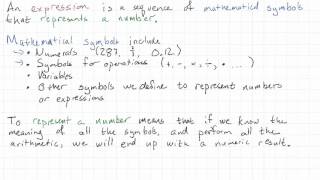 An expression is a sequence of mathematical symbols
that represents a number.
Mathematical symbols include
• Numerals (287, ½, 0.12)
• Symbols for operations (+, -, ×, ÷, • ...)
• Variables
• Other symbols we define to represent numbers
or expressions
To represent a number means that if we know the
meaning of all the symbols, and perform all the
arithmetic, we will end up with a numeric result.